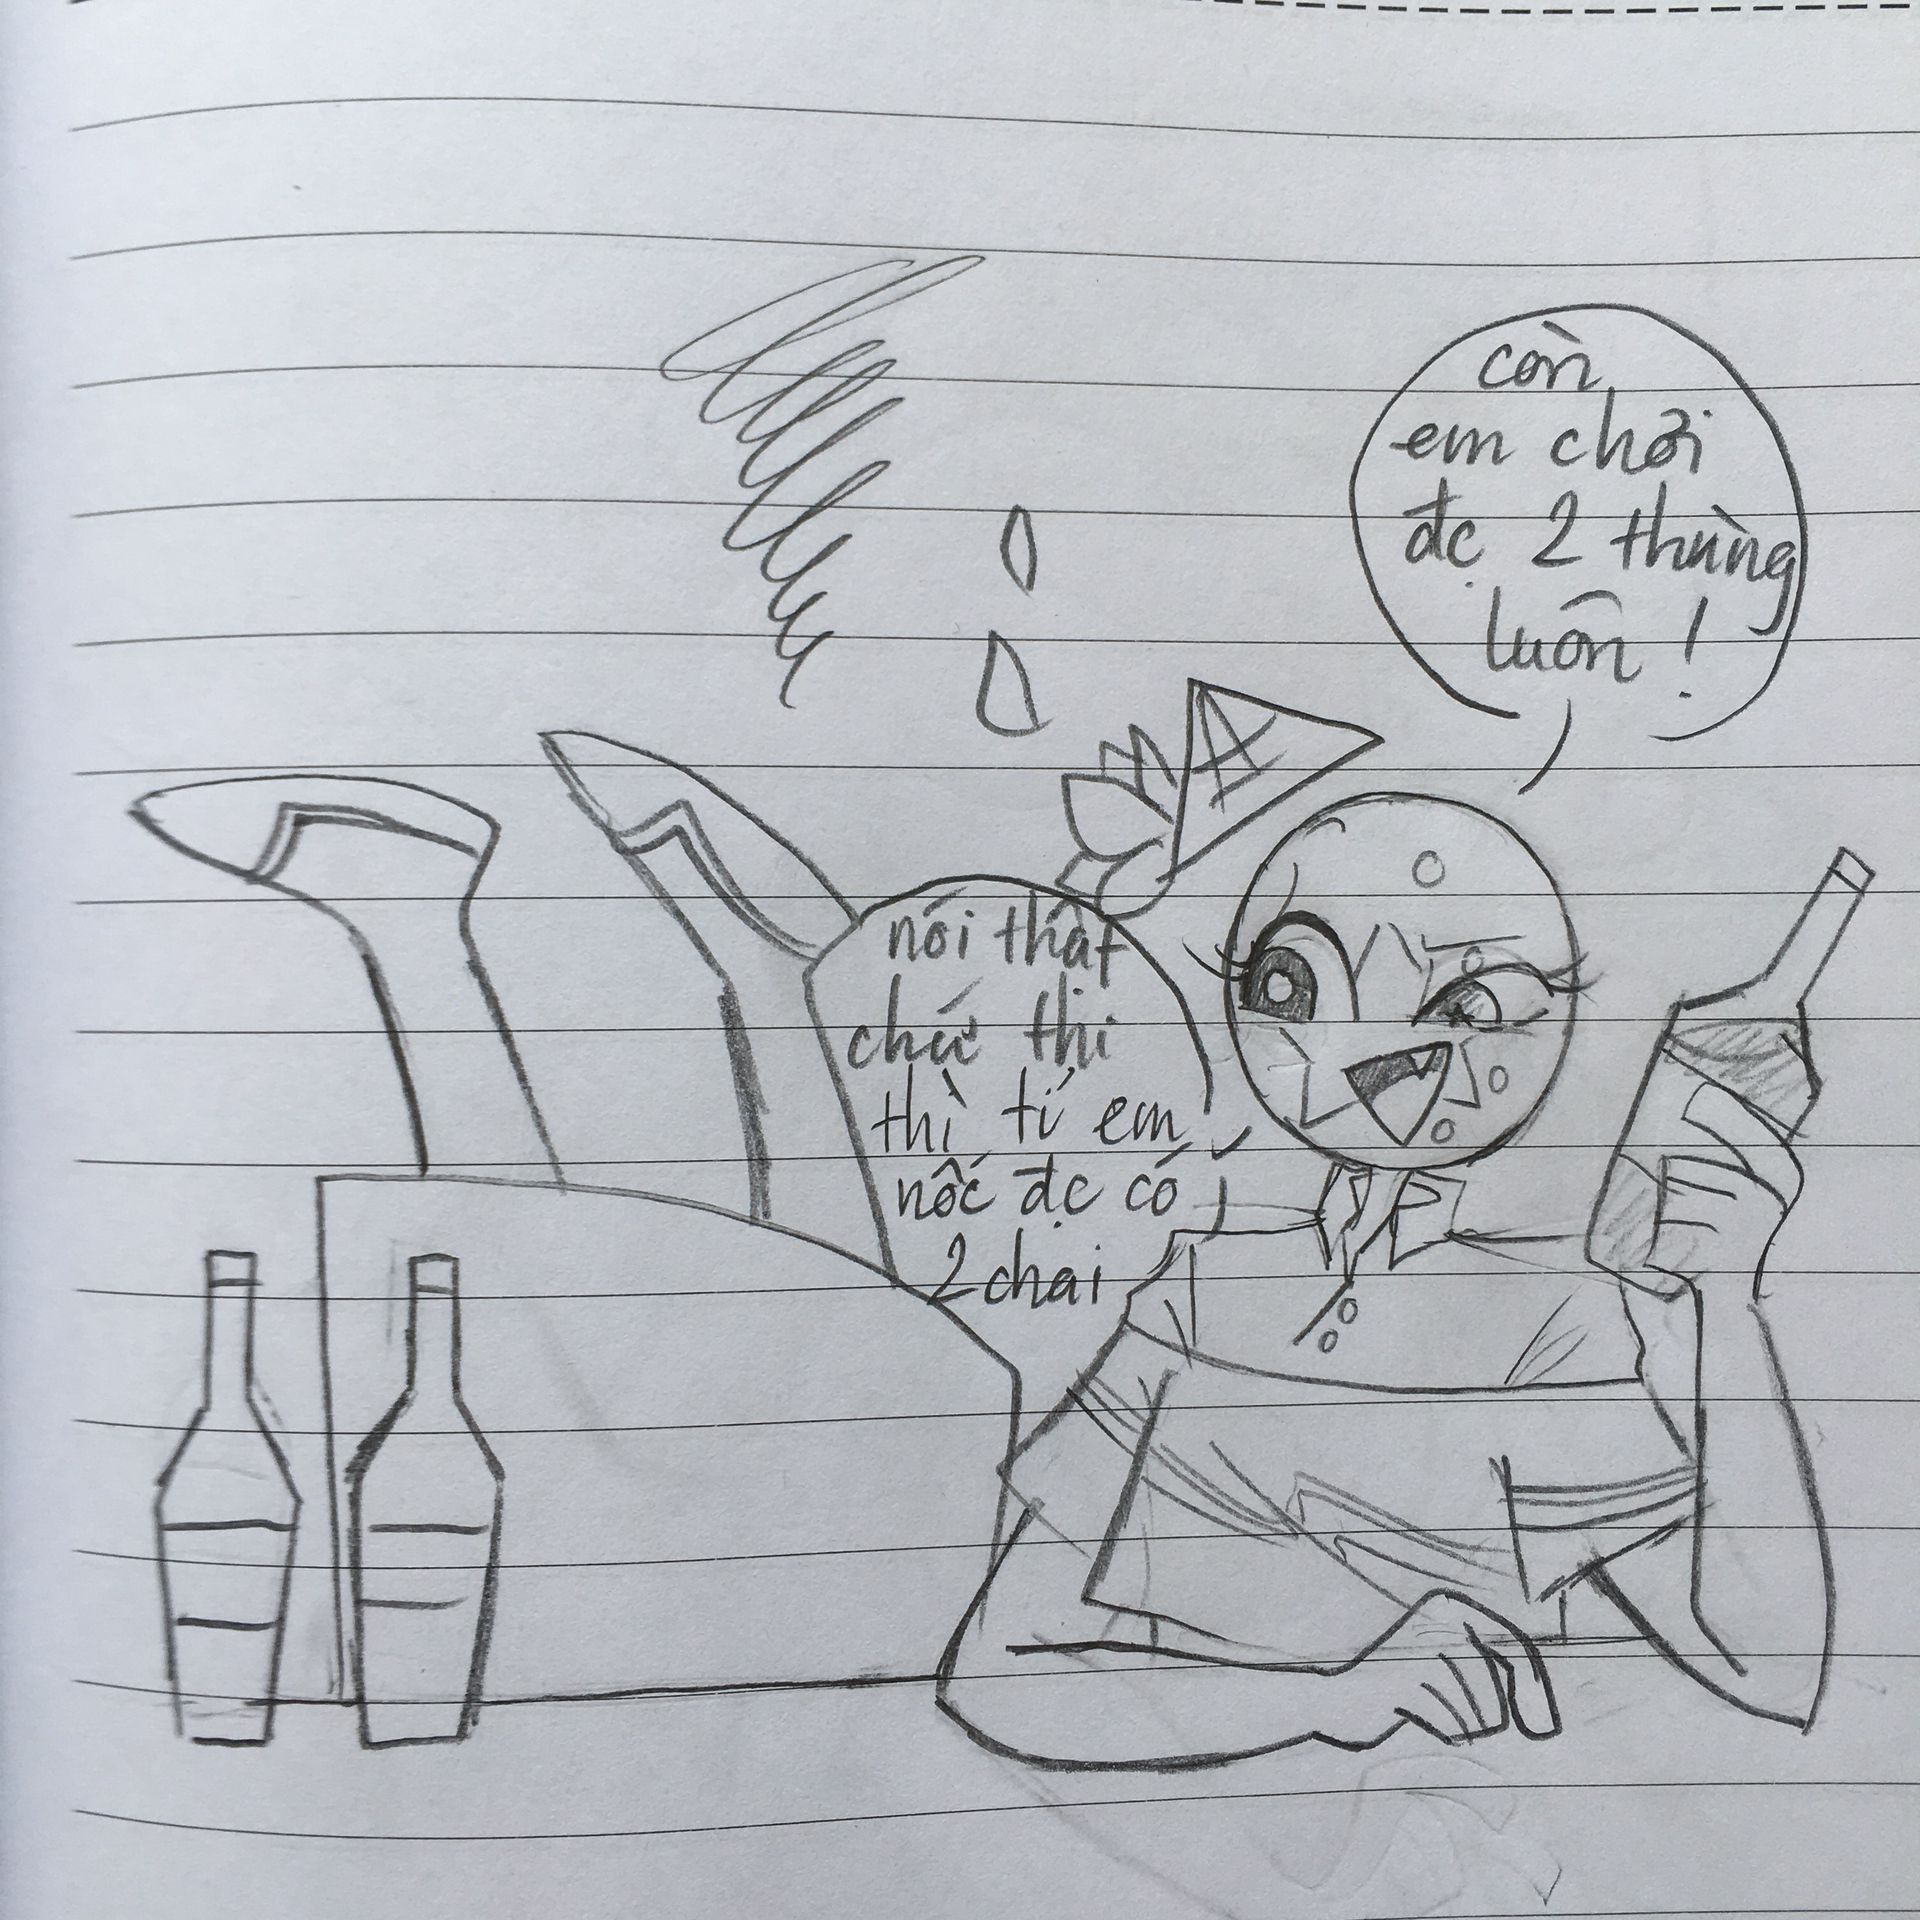 còn
em chơi
đc 2 thùng
luôn !
nói thật
chứ thi
thì tí em
nốc đc có
2 chai